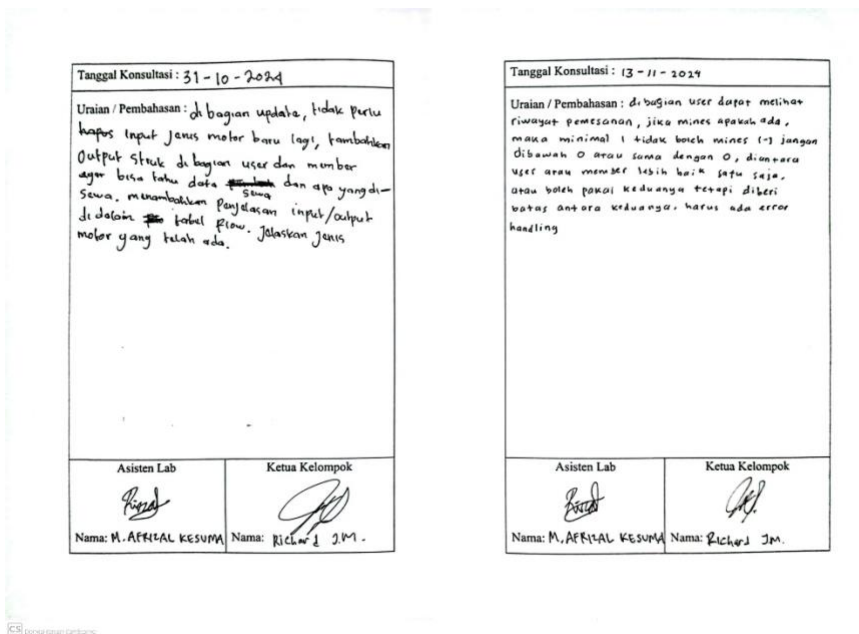 Tanggal Konsultasi : 31-10-2024
Uraian / Pembahasan : di bagian update, tidak perlu
hapos input Jenis motor baru lagi, tambahkan
Output Struk di bagian user dan member
agar bisa tahu data sewa dan apa yang di-
sewa. menambahkan Penjelasan input/output
di dalam tabel flow. Jelaskan Jenis
motor yang telah ada.
Asisten Lab
Ketua Kelompok
Nama: M. AFRIZAL KESUMA
Nama: Richard J.M.
Tanggal Konsultasi : 13-11-2024
Uraian / Pembahasan : di bagian user dapat melihat
riwayat pemesanan, jika mines apakah ada,
maka minimal 1 tidak boleh mines (-) jangan
dibawah 0 atau sama dengan 0, diantara
user atau member lebih baik satu saja,
atau boleh pakai keduanya tetapi diberi
batas antara keduanya. harus ada error
handling
Asisten Lab
Ketua Kelompok
Nama: M. AFRIZAL KESUMA
Nama: Richard JM.
CS